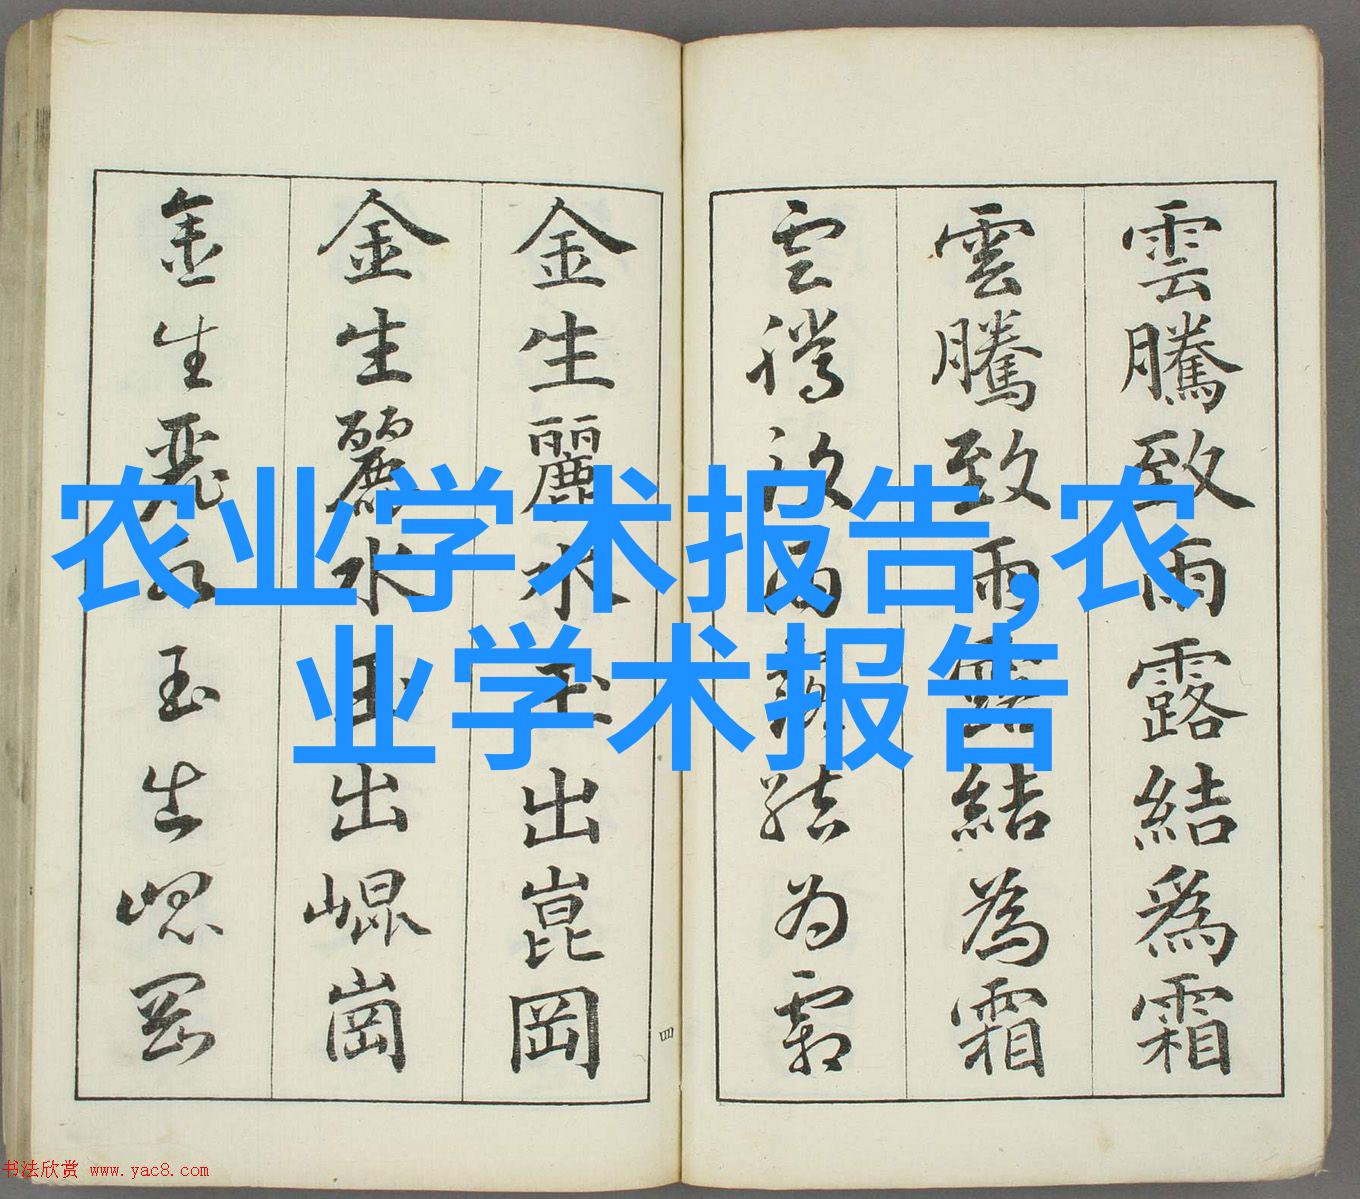 雲騰致雨露結爲霜
雲騰致雨露結為霜
雲騰致雨露結為霜
金生麗水玉出崑岡
金生麗水玉出崐崗
金生麗水玉出崐岡
四
农业学术报告,农
业学术报告
书法欣赏 www.yac8.com